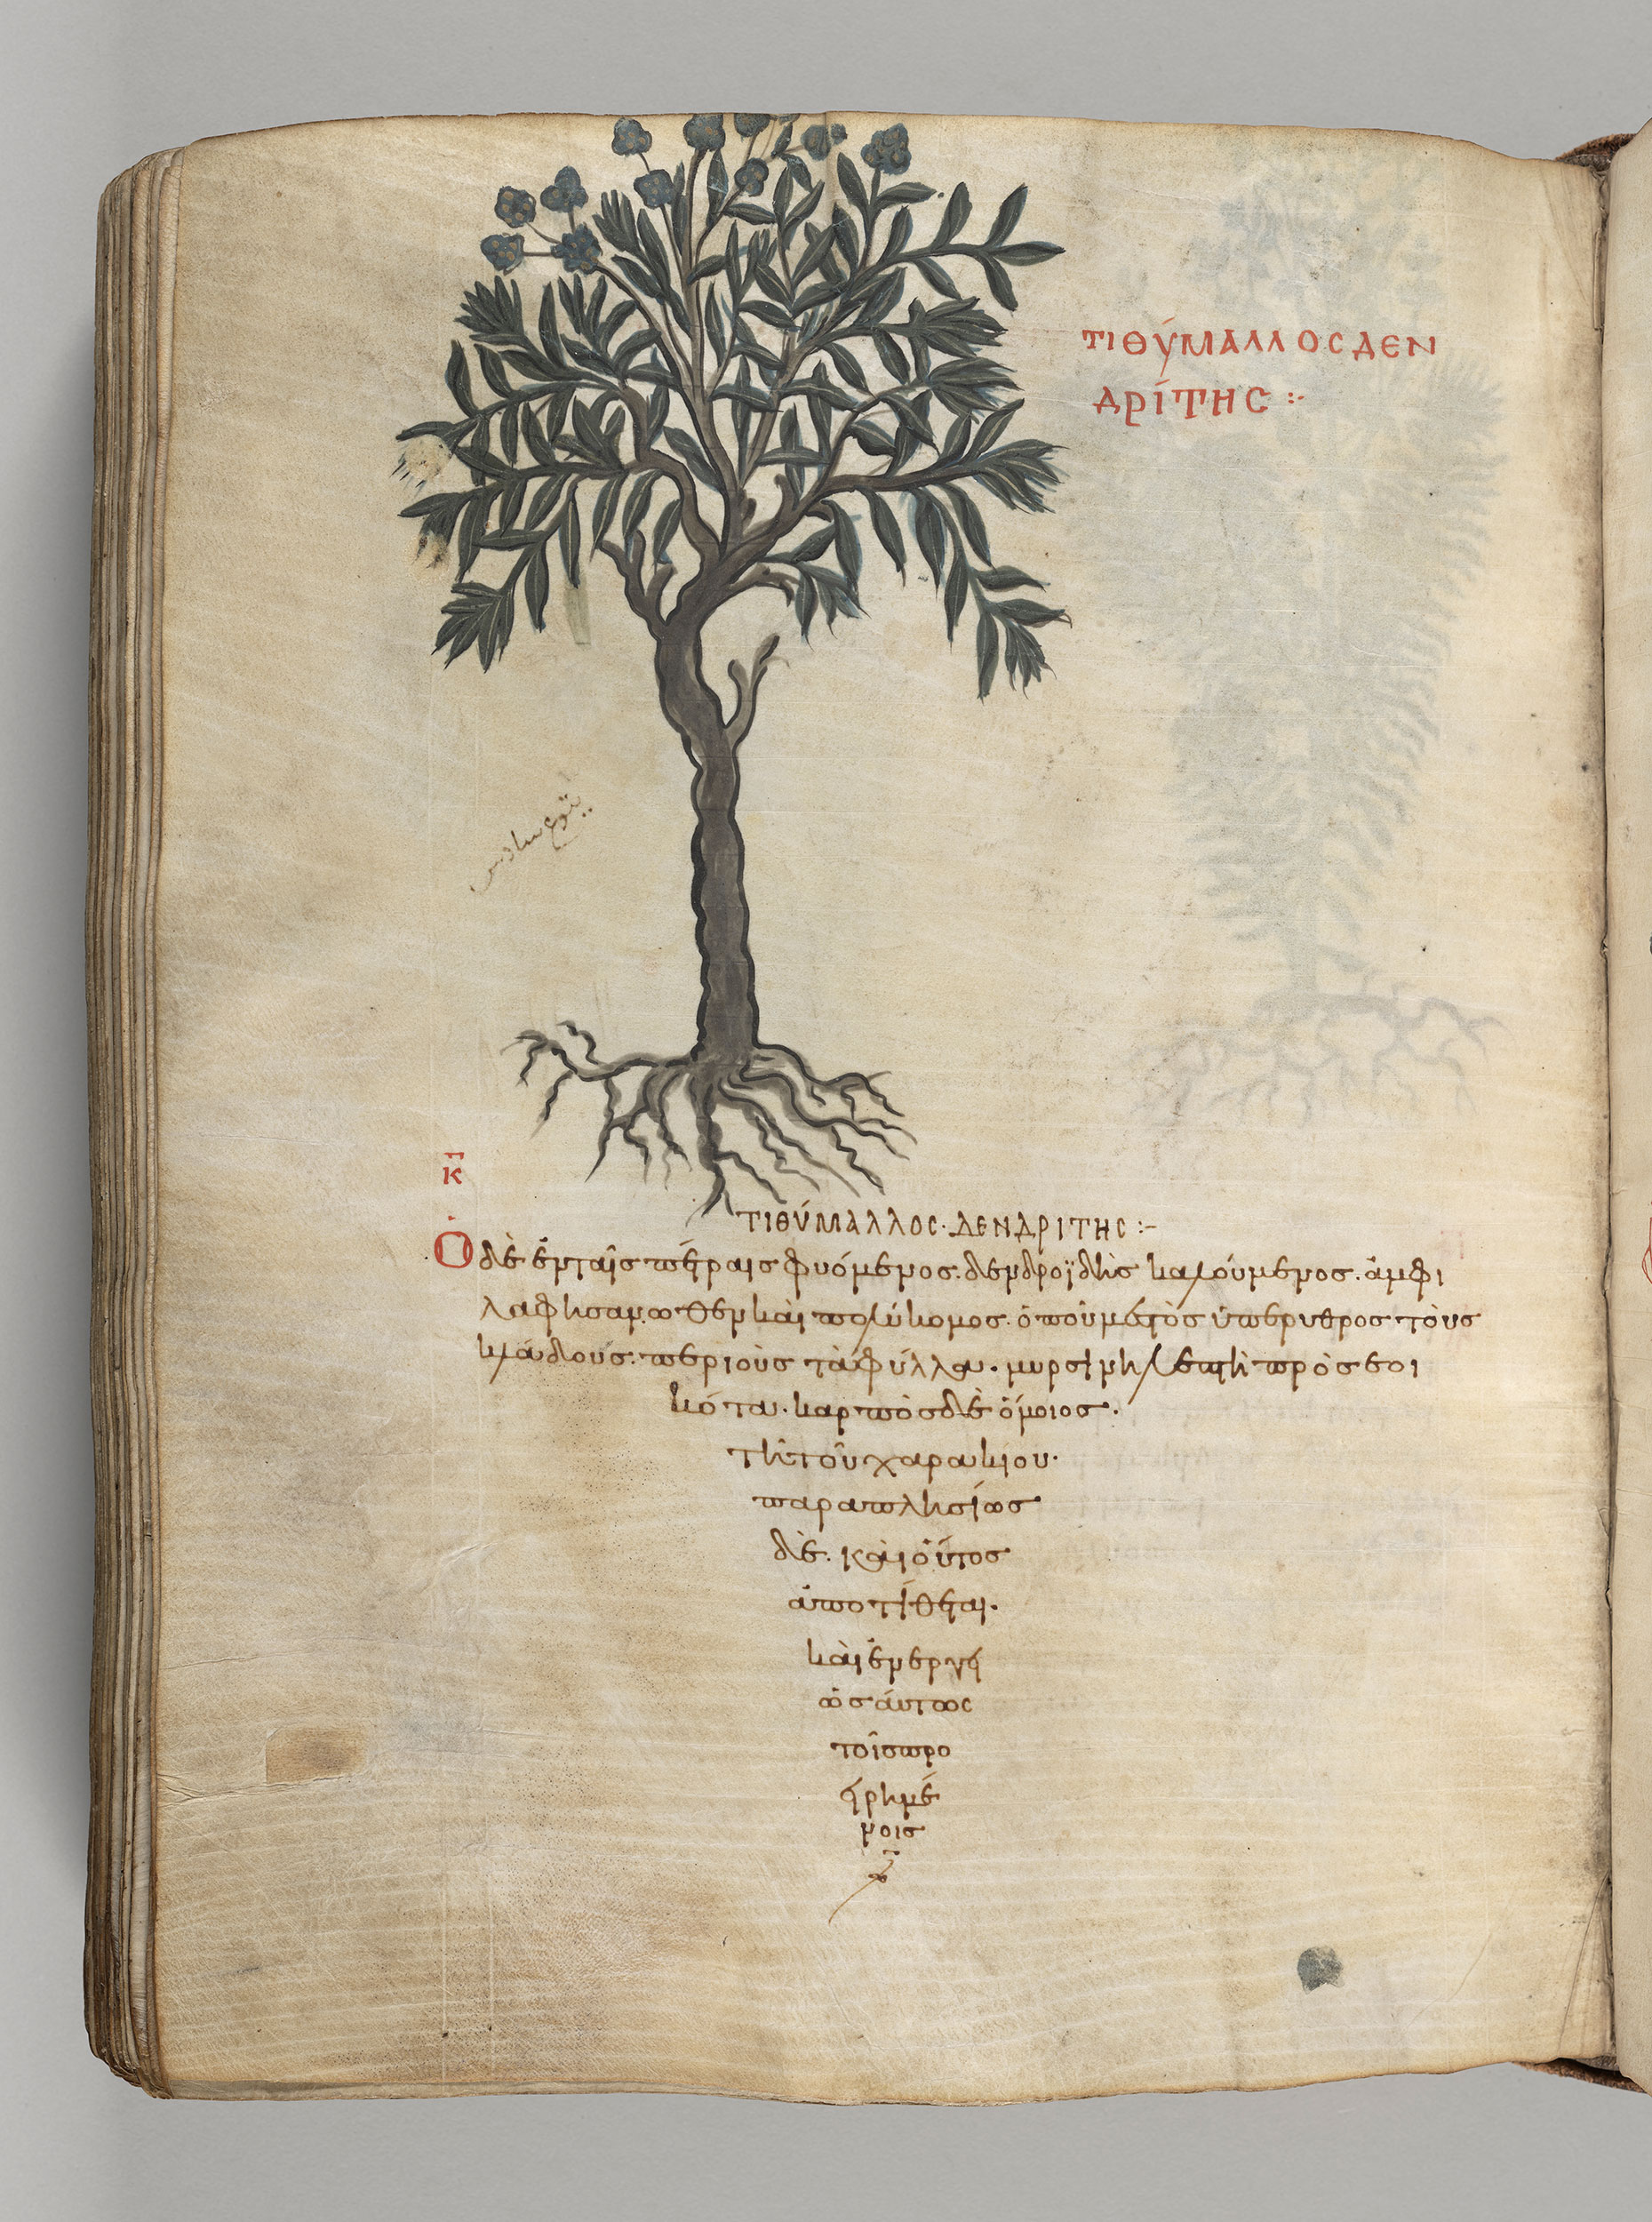 ΤΙΘΎΜΑΛΛΟϹ ΔΕΝ
ΔΡΊΤΗϹ :·
κ
ΤΙΘΎΜΑΛΛΟϹ· ΔΕΝΔΡΙΤΗϹ :–
Ὁ δὲ ἐν ταῖς πέτραις φυόμενος. δενδροϊδὴς καλούμενος. ἀμφι
λαφὴς ἄνωθεν καὶ πολύκομος. ὀποῦ μεστὸς ὑπέρυθρος τοὺς
κλάδους. περὶ οὓς τὰ φύλλα. μυρσίνῃ λεπτῇ προσεοι
κότα. καρπὸς δὲ ὅμοιος.
τῇ τοῦ χαρακίου.
παραπλησίως
δὲ. καὶ οὗτος
ἀποτίθεται.
καὶ ἐνεργεῖ
ὡσαύτως
τοῖς προ
ειρημέ
νοις